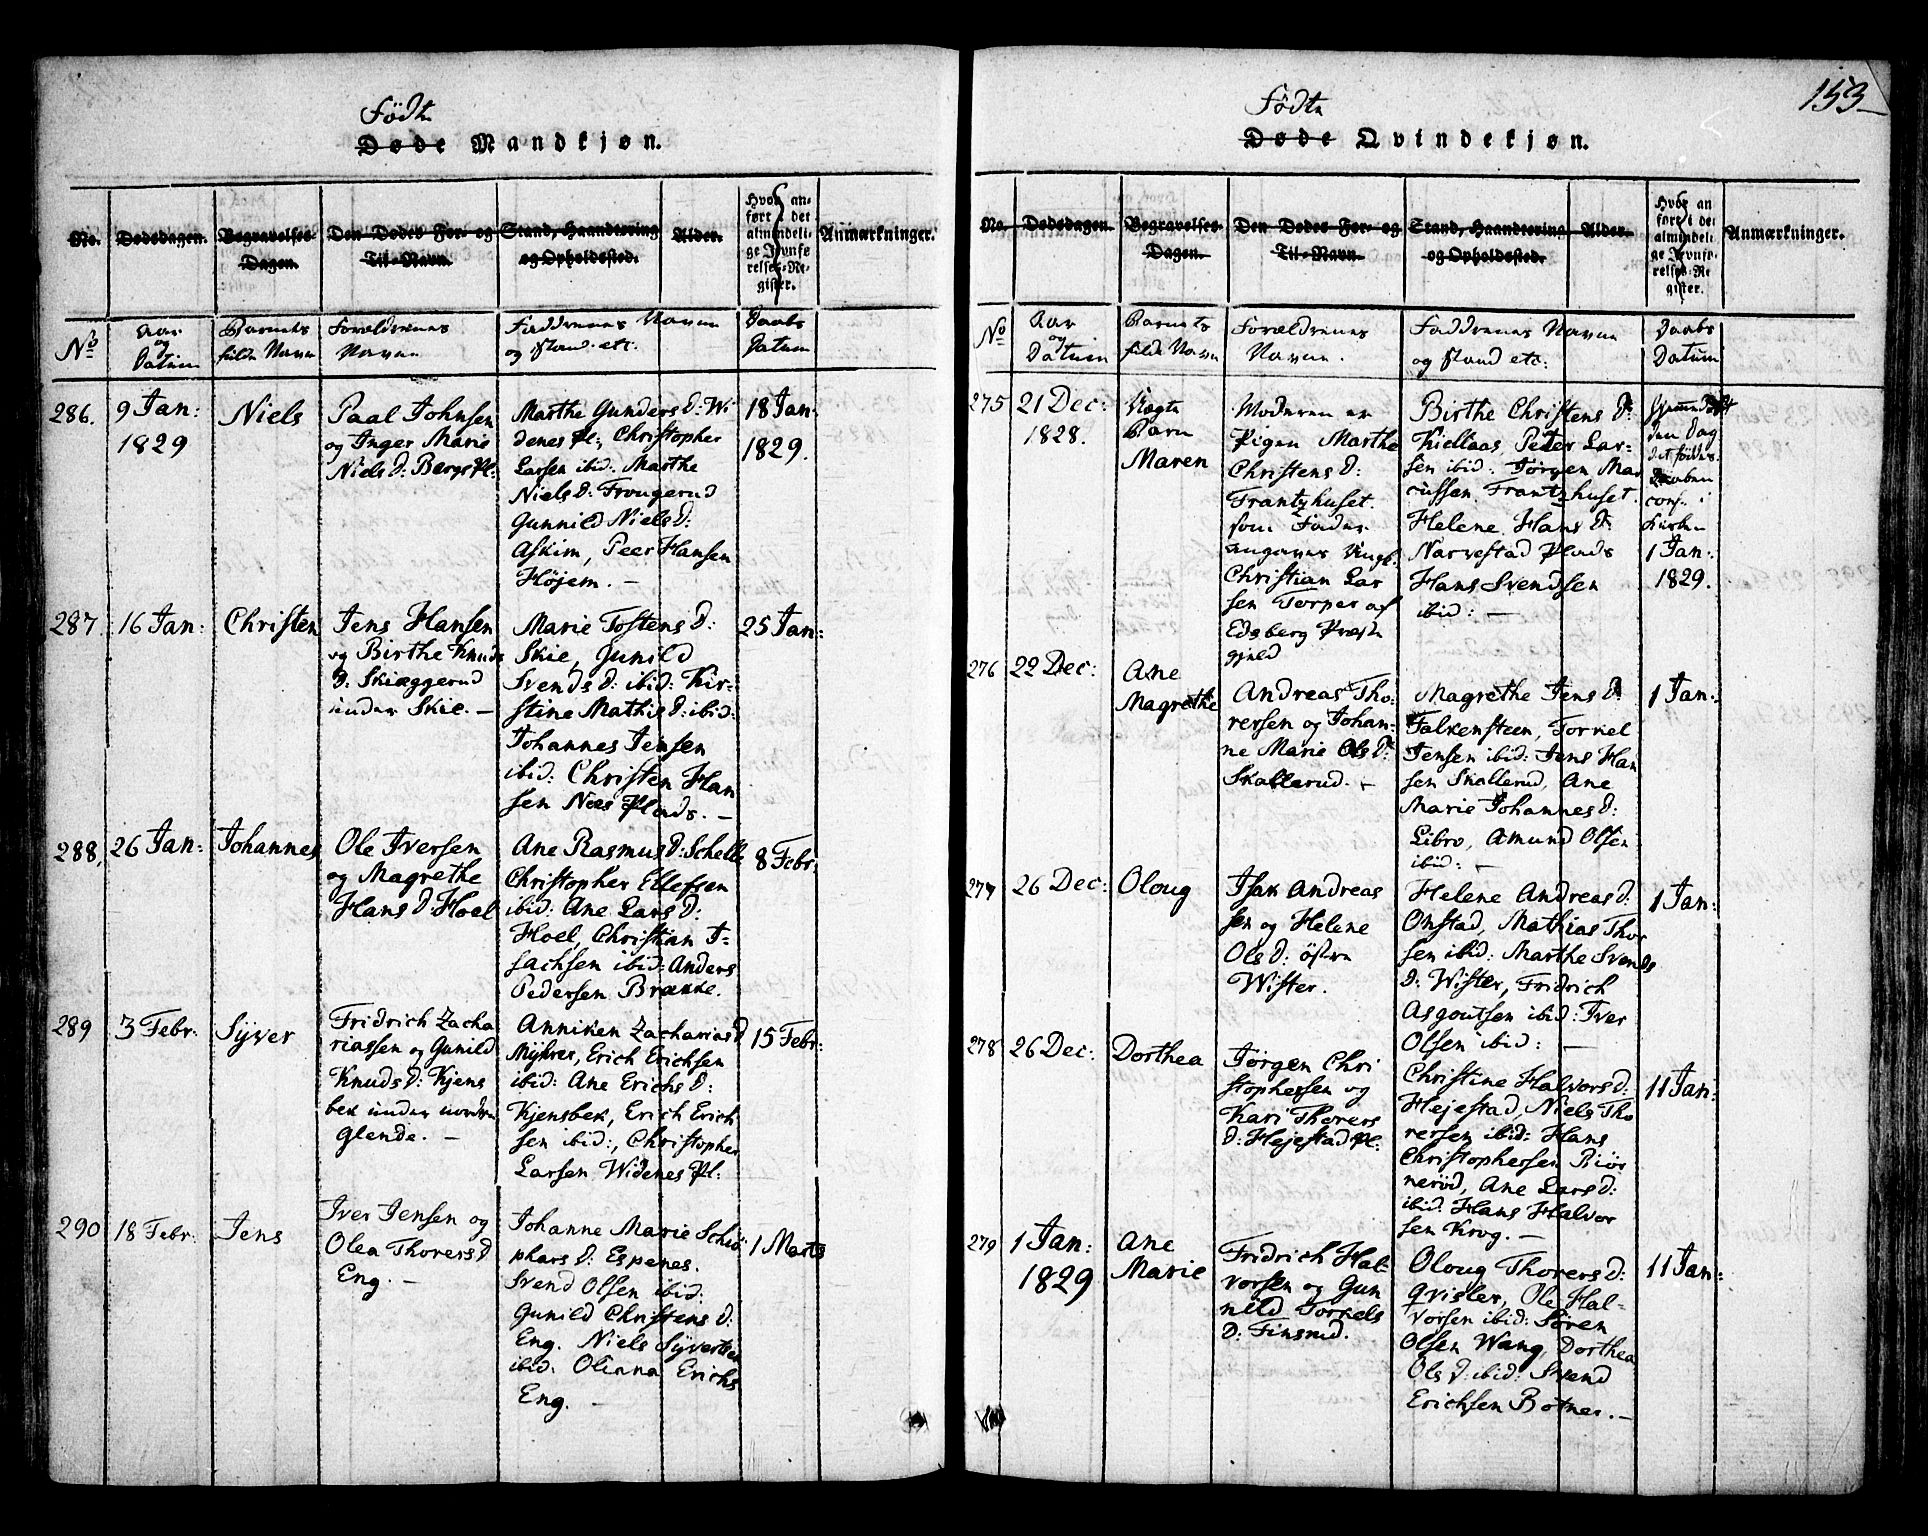 153
Fødte
Døde Mandkjøn.
No. Dødsdagen. Begravelses-Dagen. Den Dødes For- og Til-Navn. Stand, Haandtering og Opholdssted. Alder. Hvor anført i det almindelige Jevnførelses-Register. Anmærkninger.
No Aar og Datum Barnets fulde Navn Forældrenes Navne Faddrenes Navne og Stand etc. Daabs Datum
286. 9 Jan: 1829 Niels
Paal Johnsen
og Inger Marie
Niels D: Bergs Pl:
Marthe Gunders D: Wi
denes Pl:, Christopher
Larsen ibid: Marthe
Niels D: Frougerud
Gunnild Niels D:
Askim, Peer Hansen
Højem. –
18 Jan: 1829.
287. 16 Jan: Christen
Jens Hansen
og Birthe Knuds
D: Skiæggerud
under Skie. –
Marie Tostens D:
Skie, Gunild
Svends D: ibid: Kir-
stine Mathis D: ibid:
Johannes Jensen
ibid: Christen Han
sen Næs Plads. –
25 Jan:
288. 26 Jan: Johannes
Ole Iversen
og Magrethe
Hans D: Hoel
Ane Rasmus D: Schelle
Christopher Ellefsen
ibid: Ane Lars D:
Hoel, Christian I-
sachsen ibid: Anders
Pedersen Brække.
8 Febr:
289 3 Febr: Syver
Fridrich Zacha
riassen og Gunild
Knuds D: Kjens
bek under nordre
Glende. –
Anniken Zacharias D
Myhrer, Erich Erichsen
ibid: Ane Erichs D:
Kjensbek, Erich Erich
sen ibid:, Christopher
Larsen Widenes Pl:
15 Febr:
290 18 Febr: Jens
Iver Jensen og
Olea Thorers D
Eng. –
Johanne Marie
phars D: Espenes.
Svend Olsen ibid.
Gunild Christens D:
Eng. Niels Syvertsen
ibid: Olianna Erichs
Eng. –
1 Marts
Fødte
Døde Qvindekjøn.
No. Dødsdagen. Begravelses-Dagen. Den Dødes For- og Til-Navn. Stand, Haandtering og Opholdssted. Alder. Hvor anført i det almindelige Jevnførelses-Register. Anmærkninger.
No Aar og Datum Barnets fulde Navn Forældrenes Navne. Faddrenes Navne og Stand etc: Daabs Datum
275 21 Dec: 1828. Uægte Barn Maren
Moderen er
Pigen Marthe
Christens D:
Frantzhuset.
som Fader
angaves Ungk.
Christian Lar
sen Torper af
Edsberg Præste
gjeld
Birthe Christens D:
Kiellaas, Peter Lar-
sen ibid: Jørgen Mar
cussen Frantzhuset.
Helene Hans D:
Narvestad Plads
Hans Svendsen
ibid: –
Hjemmedøbt
den Dag
det fødtes.
Daaben
conf. i
Kirken
1 Jan: 1829.
276 22 Dec: Ane Magrethe
Andreas Tho-
rersen og Johan-
ne Marie Ols D:
Skallerud. –
Magrethe Jens D
Falkensteen, Torkel
Jensen ibid: Jens Han
sen Skallerud, Ane
Marie Johannes D:
Libro, Amund Olsen
ibid: –
1 Jan:
277 26 Dec: Oloug
Isak Andreas
sen og Helene
Ols D: østre
Wister.
Helene Andreas D:
Onstad, Mathias Thor
sen ibid: Marthe Svends
D: Wister, Fridrich
Asgoutsen ibid: Iver
Olsen ibid: –
1 Jan:
278 26 Dec: Dorthea
Jørgen Chri
stophersen og
Kari Thorers
D: Hejestad Pl:
Christine Halvors D:
Hejestad, Niels Tho
rersen ibid: Hans
Christophersen Biør
nerød, Ane Lars D:
ibid. Hans Halvor
sen Krog. –
11 Jan:
279 1 Jan: 1829 Ane Marie
Fridrich Hal-
vorsen og Gun
nild Torkels
D: Finsrud.
Oloug Thorers D:
Qvisler, Ole Hal-
vorsen ibid: Søren
Olsen Wang, Dorthea
Ols D: ibid: Svend
Erichsen Botner. –
11 Jan: